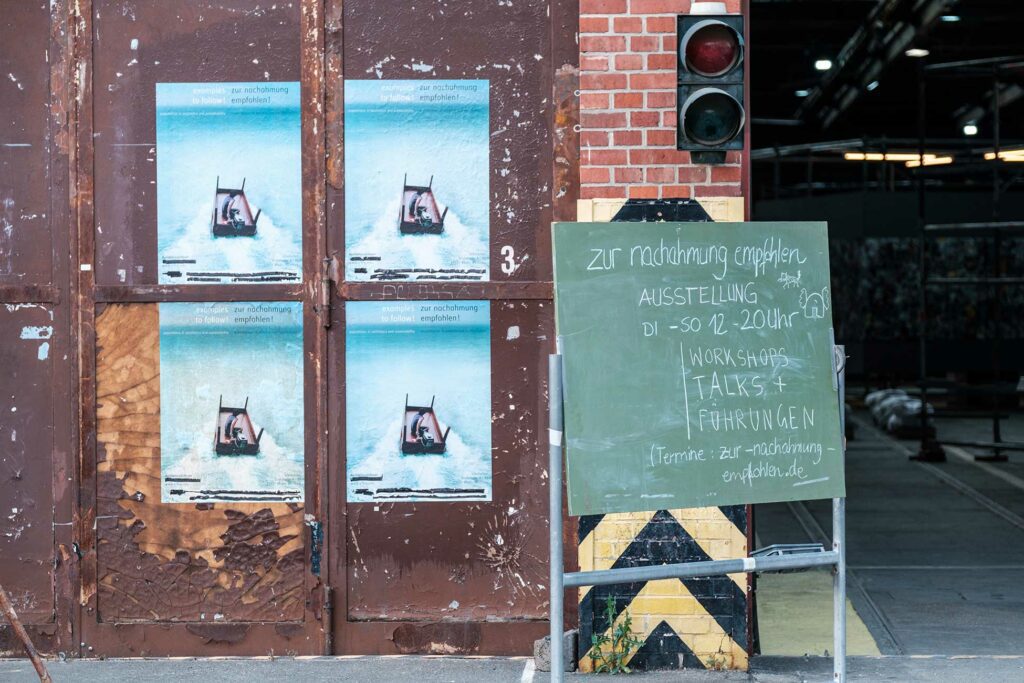 examples zur nachahmung
to follow! empfohlen!
examples zur nachahmung
to follow! empfohlen!
examples zur nachahmung
to follow! empfohlen!
examples zur nachahmung
to follow! empfohlen!
3
zur nachahmung empfohlen
AUSSTELLUNG
DI - SO 12 - 20 Uhr
WORKSHOPS
TALKS +
FÜHRUNGEN
(Termine: zur-nachahmung-
empfohlen.de